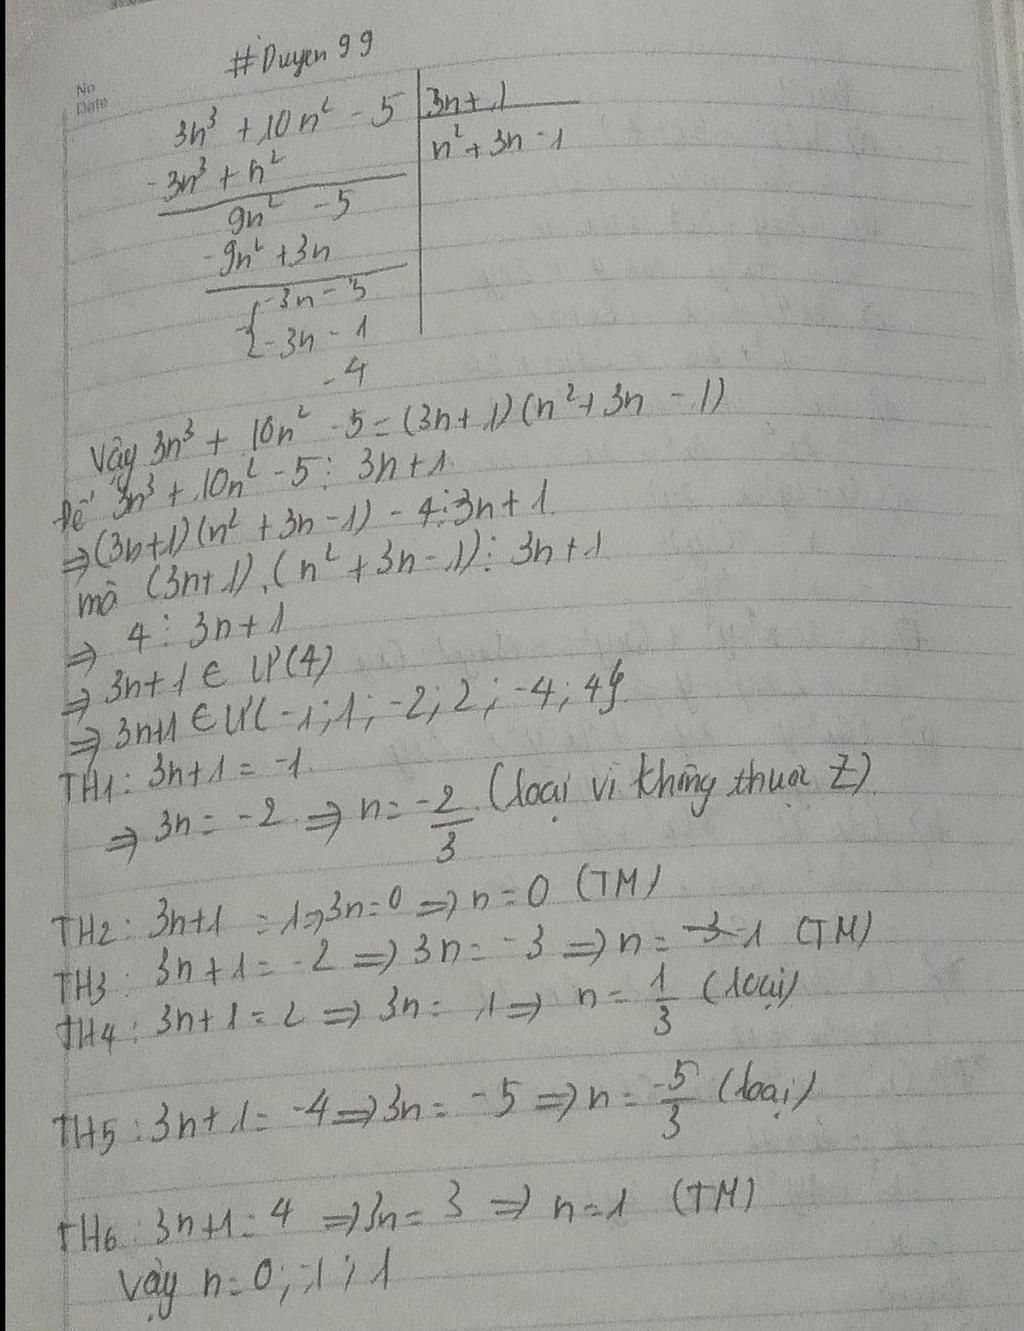 #Duyen 99
No
Date
3n³ + 10n² - 5 | 3n+1
-3n³ + n² | n² + 3n - 1
9n² - 5
-9n² + 3n
-3n - 5
-3n - 1
-4
Vậy 3n³ + 10n² - 5 = (3n+1)(n²+3n - 1)
Để 3n³ + 10n² - 5 ⋮ 3n+1
⇒ (3n+1)(n² + 3n - 1) - 4 ⋮ 3n + 1
mà (3n+1).(n² + 3n - 1) ⋮ 3n+1
⇒ 4 ⋮ 3n+1
⇒ 3n+1 ∈ Ư(4)
⇒ 3n+1 ∈ Ư{-1; 1; -2; 2; -4; 4}
TH1: 3n+1 = -1
⇒ 3n = -2 ⇒ n = -2/3 (loại vì không thuộc Z)
TH2: 3n+1 = 1 ⇒ 3n = 0 ⇒ n = 0 (TM)
TH3: 3n+1 = -2 ⇒ 3n = -3 ⇒ n = -1 (TM)
TH4: 3n+1 = 2 ⇒ 3n = 1 ⇒ n = 1/3 (loại)
TH5: 3n+1 = -4 ⇒ 3n = -5 ⇒ n = -5/3 (loại)
TH6: 3n+1 = 4 ⇒ 3n = 3 ⇒ n = 1 (TM)
Vậy n = 0; -1; 1